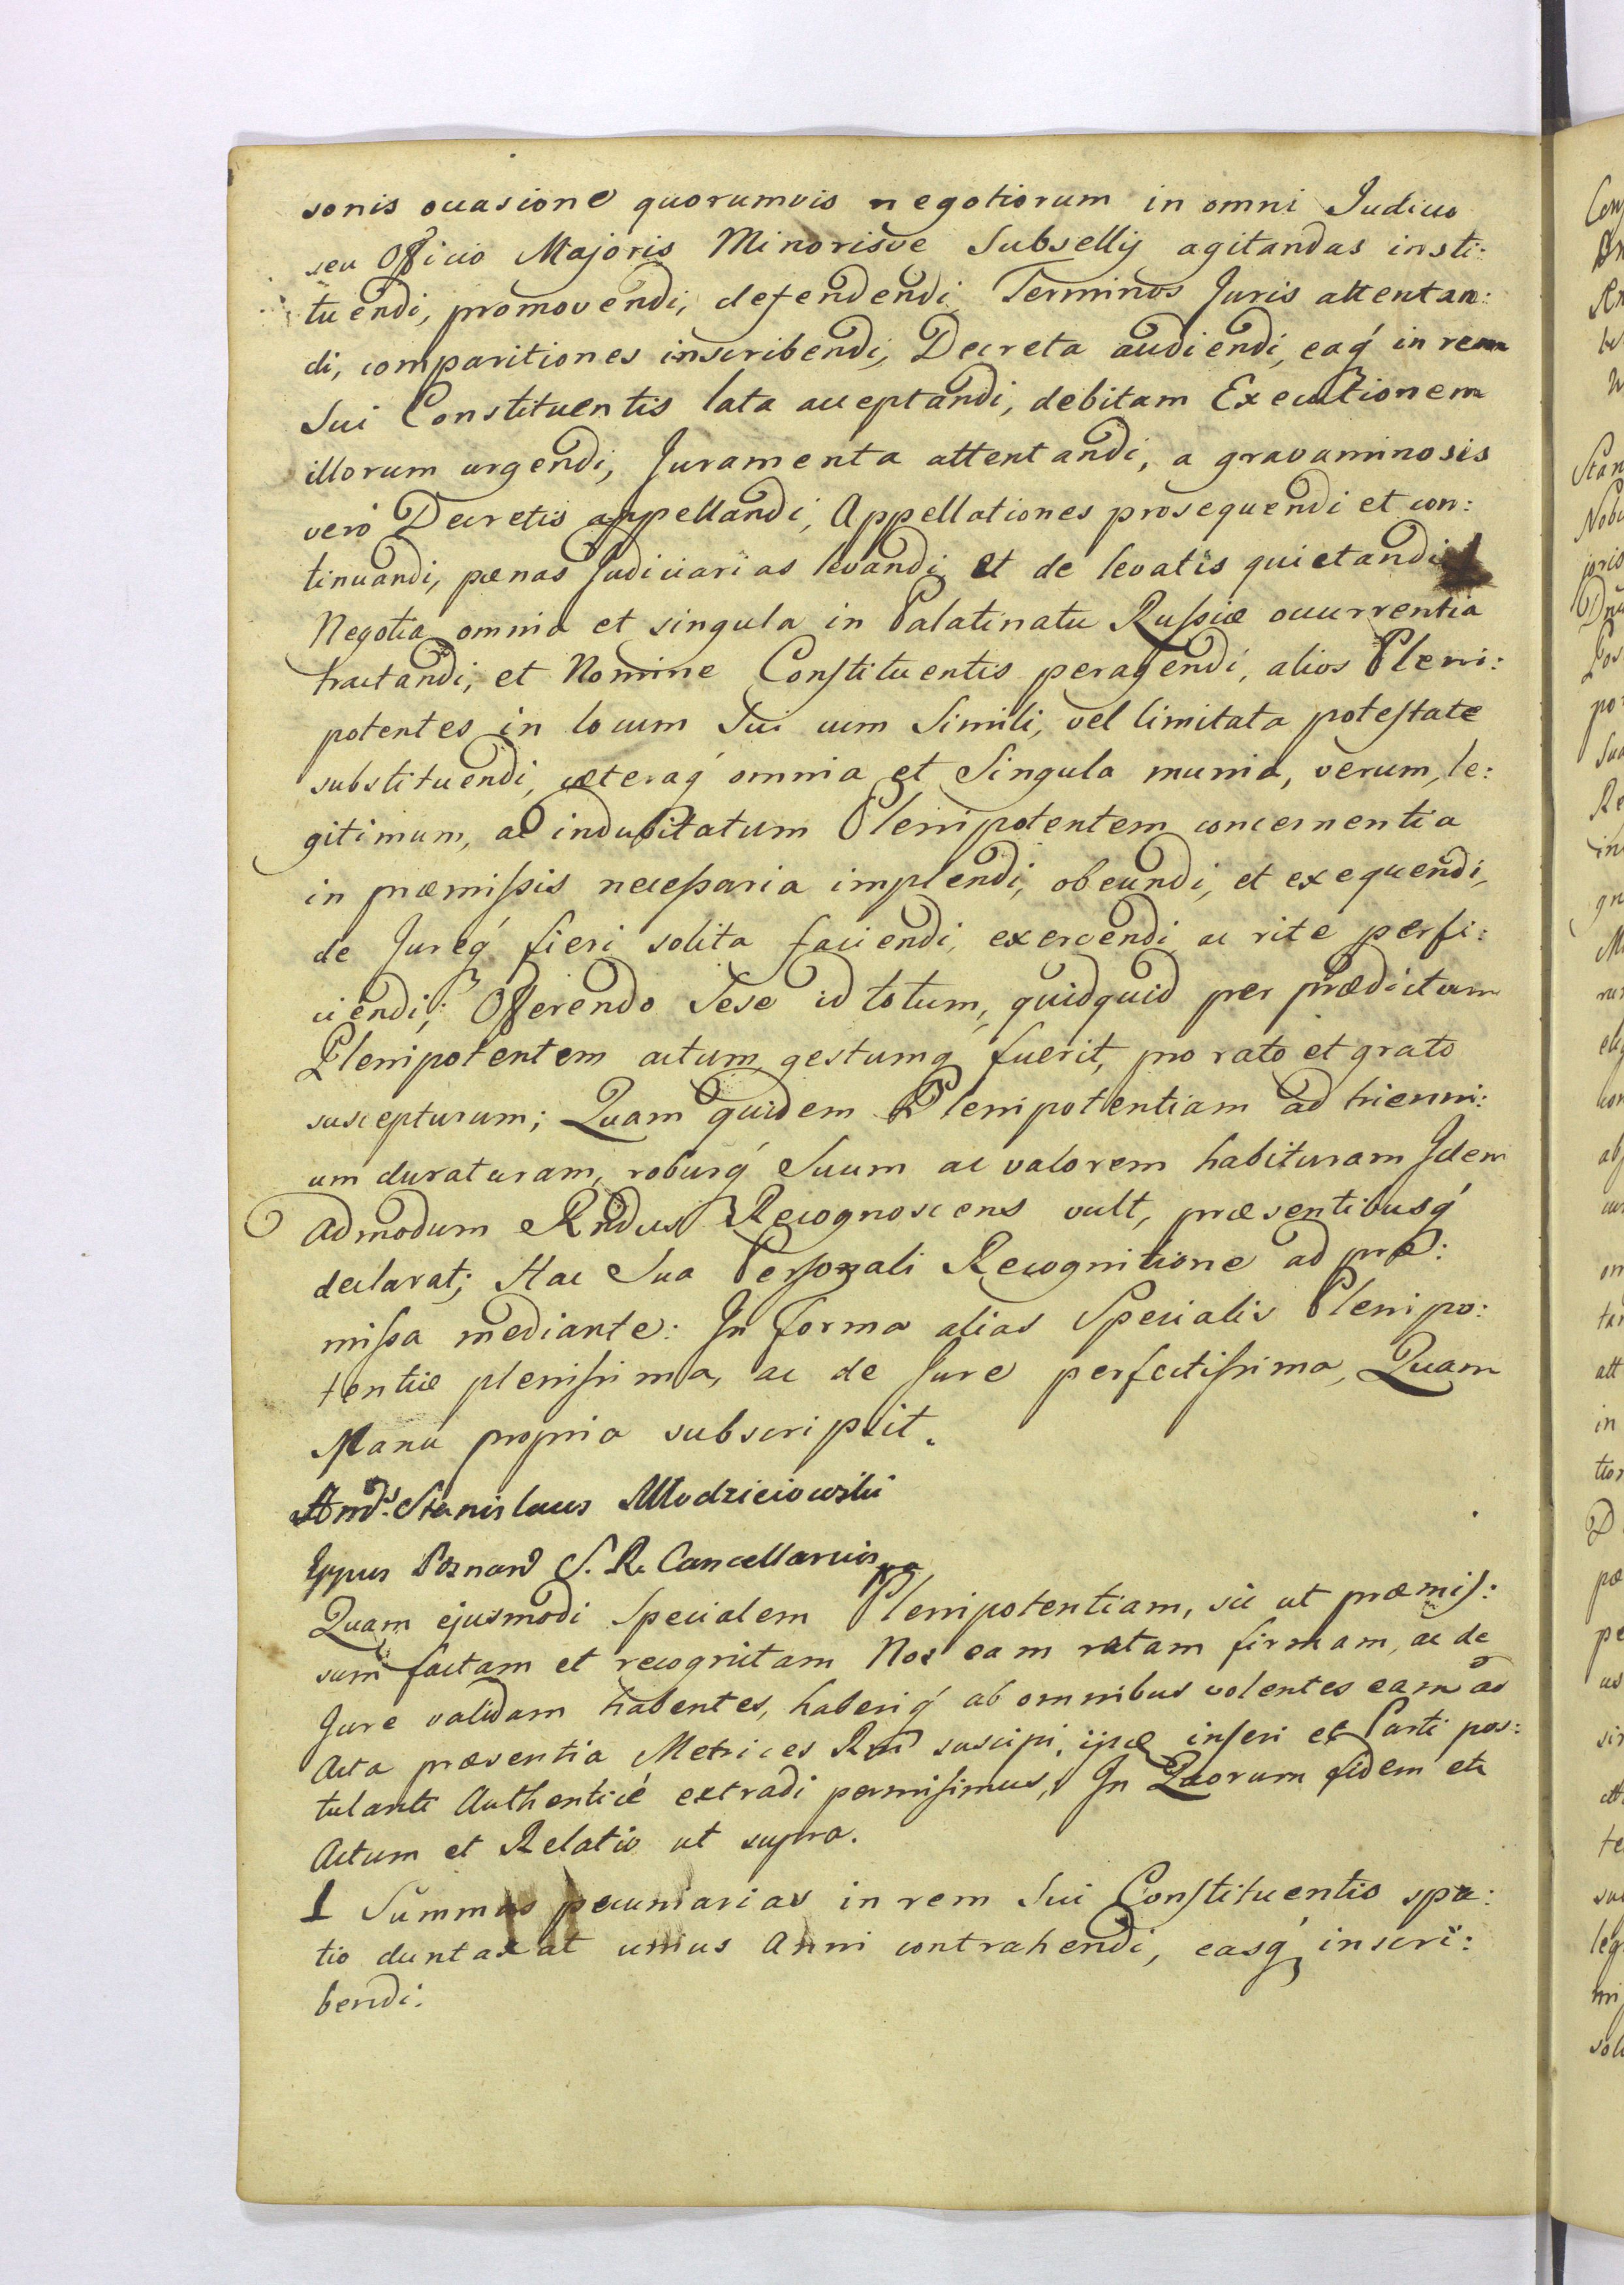 sonis occasione quorumvis negotiorum in omni Judicio
seu Officio Majoris Minorisve Subsellij agitandas insti:
tuendi, promovendi, defendendi, Terminos Juris attentan:
di, comparitiones inscribendi, Decreta audiendi, eaq́ in rem
Sui Constituentis lata acceptandi, debitam Executionem
illorum urgendi, Juramenta attentandi, a gravaminosis
veró Decretis appellandi, Appellationes prosequendi et con:
tinuandi, pænas Judiciarias levandi, et de levatis quietandi
Negotia omnia et singula in Palatinatu Russiæ occurrentia
tractandi, et Nomine Constituentis peragendi, alios Pleni:
potentes in locum Sui cum Simili, vel limitata potestate
substituendi, cæteraq́ omnia et Singula munia, verum, le:
gitimum, ac indubitatum Plenipotentem concernentia
in præmissis necessaria implendi, obeundi, et exequendi,
de Jureq́ fieri solita faciendi, exercendi ac rite perfi:
ciendi; Offerendo Sese id totum, quidquid per prædictum
Plenipotentem actum gestumq́ fuerit, pro rato et grato
suscepturum; Quam quidem Plenipotentiam ad trienni:
um duraturam, roburq́ Suum ac valorem habituram Idem
Admodum Rndus Recognoscens vult, præsentibusq́
declarat; Hac Sua Personali Recognitione ad præ:
missa mediante: In forma alias Specialis Plenipo:
tentiæ plenissima, ac de Jure perfectissima, Quam
Manu propria subscripsit.
Andr. Stanislaus Młodzieiowski
Eppus Posnan S. R. Cancellarius mpa
Quam ejusmodi Specialem Plenipotentiam, sic ut præmis:
sum factam et recognitam Nos eam ratam firmam, ac de
Jure validam habentes, haberiq́ ab omnibus volentes eam ad
Acta præsentia Metrices Rni suscipi, ijsq́ inseri et Parti pos:
tulanti Authenticé extradi permisimus, In Quorum fidem etc
Actum et Relatio ut supra.
1 Summas pecuniarias in rem Sui Constituentis spa:
tio duntaxat unius Anni contrahendi, easq́ inscri:
bendi: